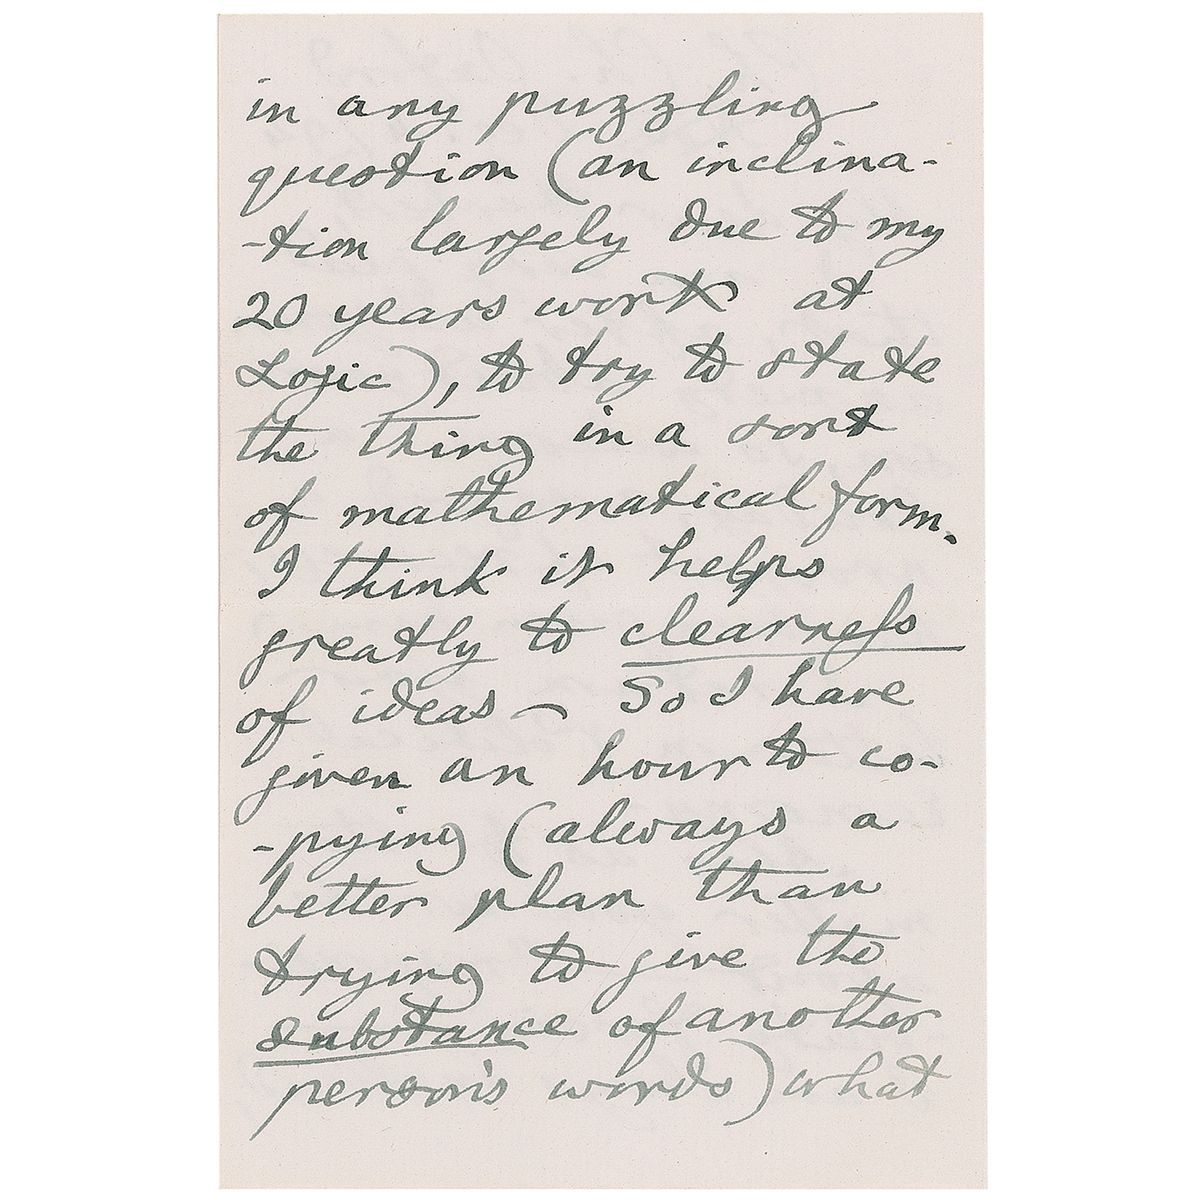 in any puzzling
question (an inclina-
-tion largely due to my
20 years work at
Logic), to try to state
the thing in a sort
of mathematical form.
I think it helps
greatly to clearness
of ideas - So I have
given an hour to co-
-pying (always a
better plan than
trying to give the
substance of another
person's words) what